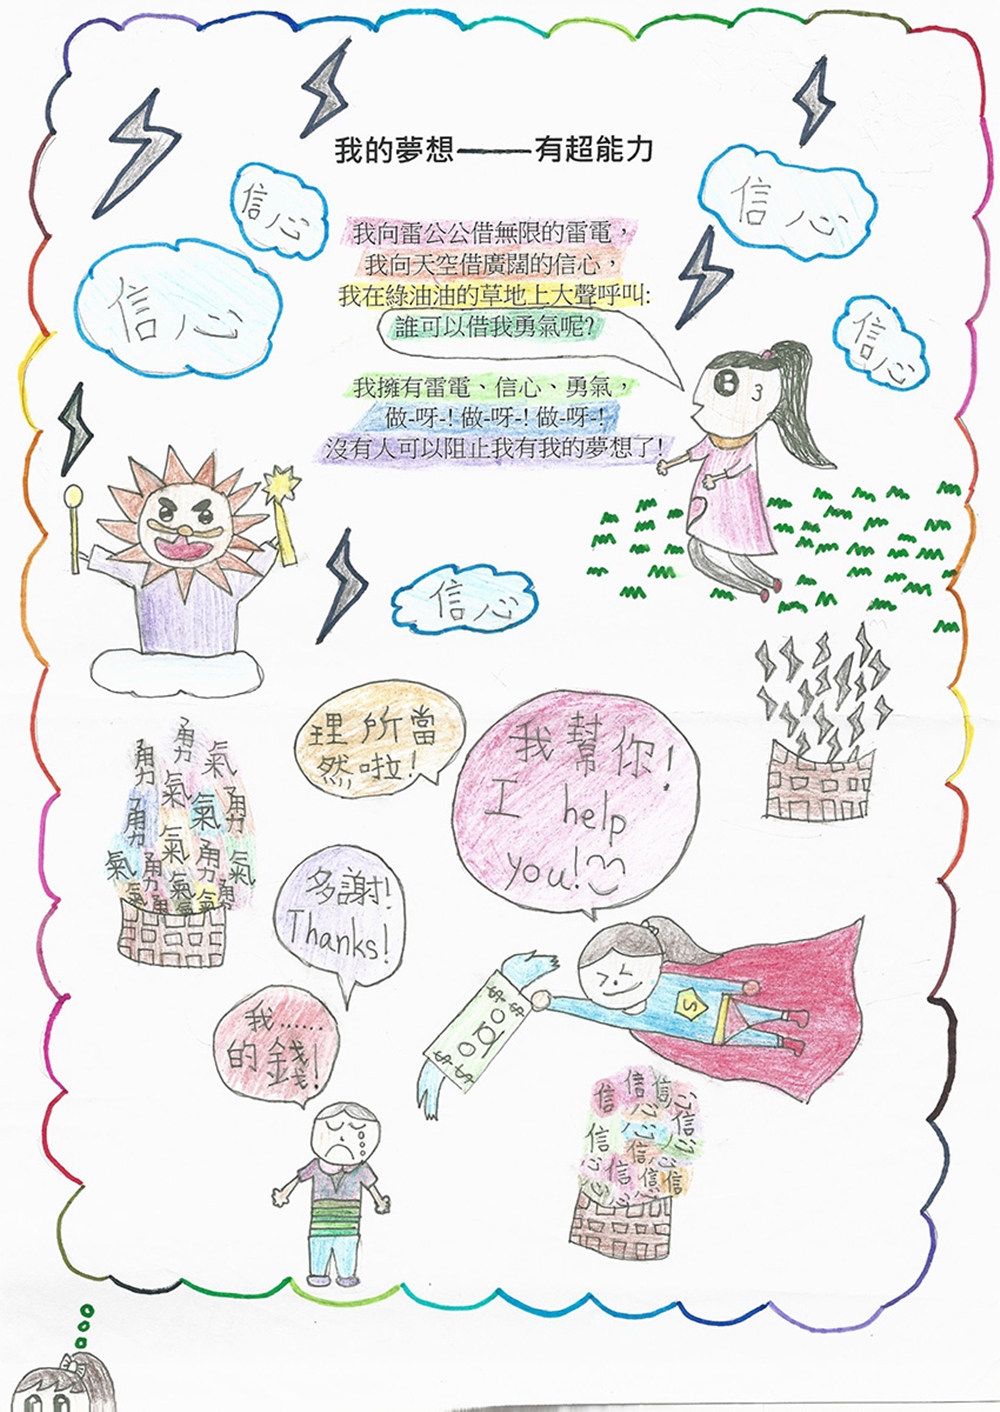 我的夢想——有超能力
信心
信心
信心
信心
我向雷公公借無限的雷電，
我向天空借廣闊的信心，
我在綠油油的草地上大聲呼叫:
誰可以借我勇氣呢?
我擁有雷電、信心、勇氣，
做-呀-! 做-呀-! 做-呀-!
沒有人可以阻止我有我的夢想了!
信心
理所當
然啦!
我幫你!
I help
you!
勇氣
勇氣
勇氣
勇氣
勇氣
勇氣
多謝!
Thanks!
我......
的錢!
$ $
$ $
S
信心
信心
信心
信心
信心
信心
信心
信